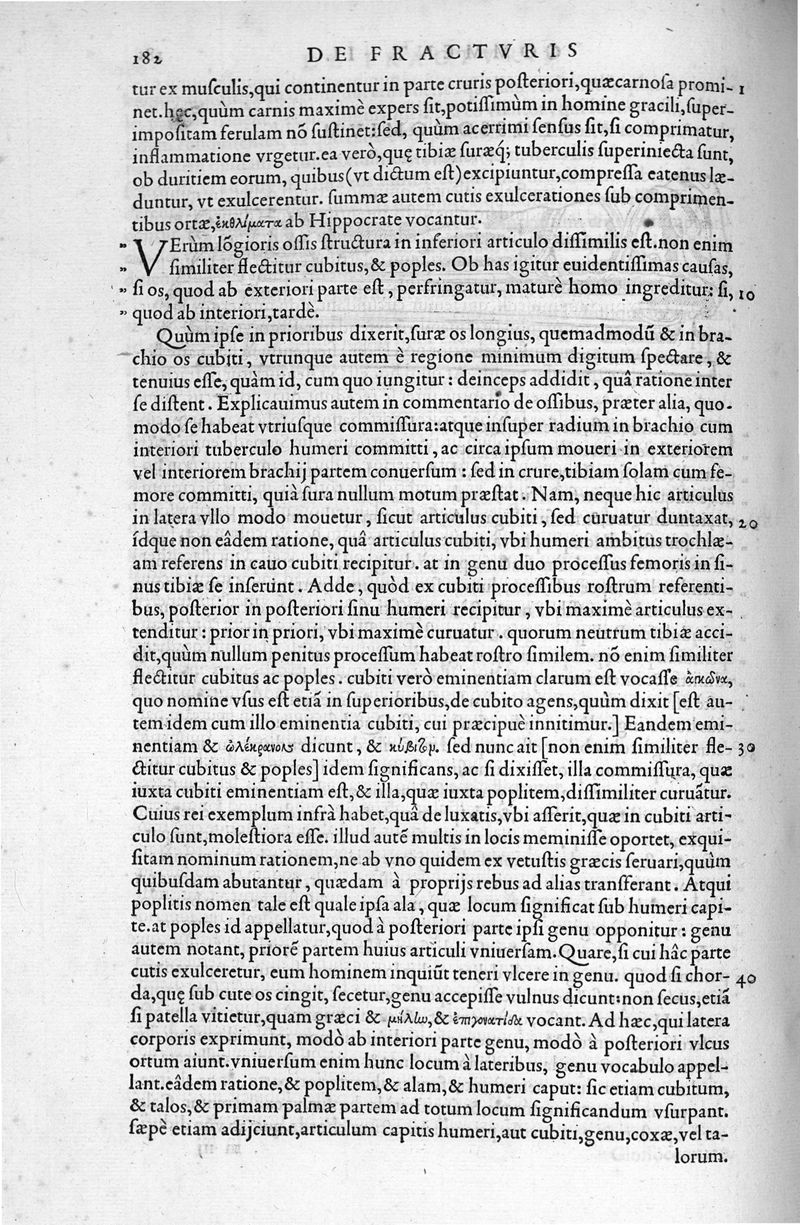 182 DE FRACTVRIS
tur ex musculis,qui continentur in parte cruris posteriori,quæcarnosa promi- 1
net.hęc,quùm carnis maximè expers sit,potissimùm in homine gracili,super-
impositam ferulam nō sustinet:sed, quùm acerrimi sensus sit,si comprimatur,
inflammatione vrgetur.ea verò,quę tibiæ suræq́; tuberculis superiniecta sunt,
ob duritiem eorum, quibus(vt dictum est)excipiuntur,compressa eatenus læ-
duntur, vt exulcerentur. summæ autem cutis exulcerationes sub comprimen-
tibus ortæ,ἐκθλίματα ab Hippocrate vocantur.
„ VErùm lōgioris ossis structura in inferiori articulo dissimilis est.non enim
„ similiter flectitur cubitus,& poples. Ob has igitur euidentissimas causas,
„ si os, quod ab exteriori parte est, perfringatur, maturè homo ingreditur: si, 10
„ quod ab interiori,tardè.
Quùm ipse in prioribus dixerit,suræ os longius, quemadmodũ & in bra-
chio os cubiti, vtrunque autem è regione minimum digitum spectare, &
tenuius esse, quàm id, cum quo iungitur: deinceps addidit, quâ ratione inter
se distent. Explicauimus autem in commentario de ossibus, præter alia, quo-
modo se habeat vtriusque commissura:atque insuper radium in brachio cum
interiori tuberculo humeri committi, ac circa ipsum moueri in exteriorem
vel interiorem brachij partem conuersum: sed in crure,tibiam solam cum fe-
more committi, quià sura nullum motum præstat. Nam, neque hic articulus
in latera vllo modo mouetur, sicut articulus cubiti, sed curuatur duntaxat, 20
ídque non eâdem ratione, quâ articulus cubiti, vbi humeri ambitus trochlæ-
am referens in cauo cubiti recipitur. at in genu duo processus femoris in si-
nus tibiæ se inserunt. Adde, quòd ex cubiti processibus rostrum referenti-
bus, posterior in posteriori sinu humeri recipitur, vbi maximè articulus ex-
tenditur: prior in priori, vbi maximè curuatur. quorum neutrum tibiæ acci-
dit,quùm nullum penitus processum habeat rostro similem. nō enim similiter
flectitur cubitus ac poples. cubiti verò eminentiam clarum est vocasse ἀγκῶνα,
quo nomine vsus est etiā in superioribus,de cubito agens,quùm dixit [est au-
tem idem cum illo eminentia cubiti, cui præcipuè innitimur.] Eandem emi-
nentiam & ὠλέκρανον dicunt, & κύβιτον. sed nunc ait [non enim similiter fle- 30
ctitur cubitus & poples] idem significans, ac si dixisset, illa commissura, quæ
iuxta cubiti eminentiam est,& illa,quæ iuxta poplitem,dissimiliter curuātur.
Cuius rei exemplum infrà habet,quâ de luxatis,vbi asserit,quæ in cubiti arti-
culo sunt,molestiora esse. illud autē multis in locis meminisse oportet, exqui-
sitam nominum rationem,ne ab vno quidem ex vetustis græcis seruari,quùm
quibusdam abutantur, quædam à proprijs rebus ad alias transferant. Atqui
poplitis nomen tale est quale ipsa ala, quæ locum significat sub humeri capi-
te.at poples id appellatur,quod à posteriori parte ipsi genu opponitur: genu
autem notant, priorē partem huius articuli vniuersam.Quare,si cui hâc parte
cutis exulceretur, eum hominem inquiūt teneri vlcere in genu. quod si chor- 40
da,quę sub cute os cingit, secetur,genu accepisse vulnus dicunt:non secus,etiā
si patella vitietur,quam græci & μύλην,& ἐπιγονατίδα vocant. Ad hæc,qui latera
corporis exprimunt, modò ab interiori parte genu, modò à posteriori vlcus
ortum aiunt.vniuersum enim hunc locum à lateribus, genu vocabulo appel-
lant.eâdem ratione,& poplitem,& alam,& humeri caput: sic etiam cubitum,
& talos,& primam palmæ partem ad totum locum significandum vsurpant.
sæpè etiam adijciunt,articulum capitis humeri,aut cubiti,genu,coxæ,vel ta-
lorum.